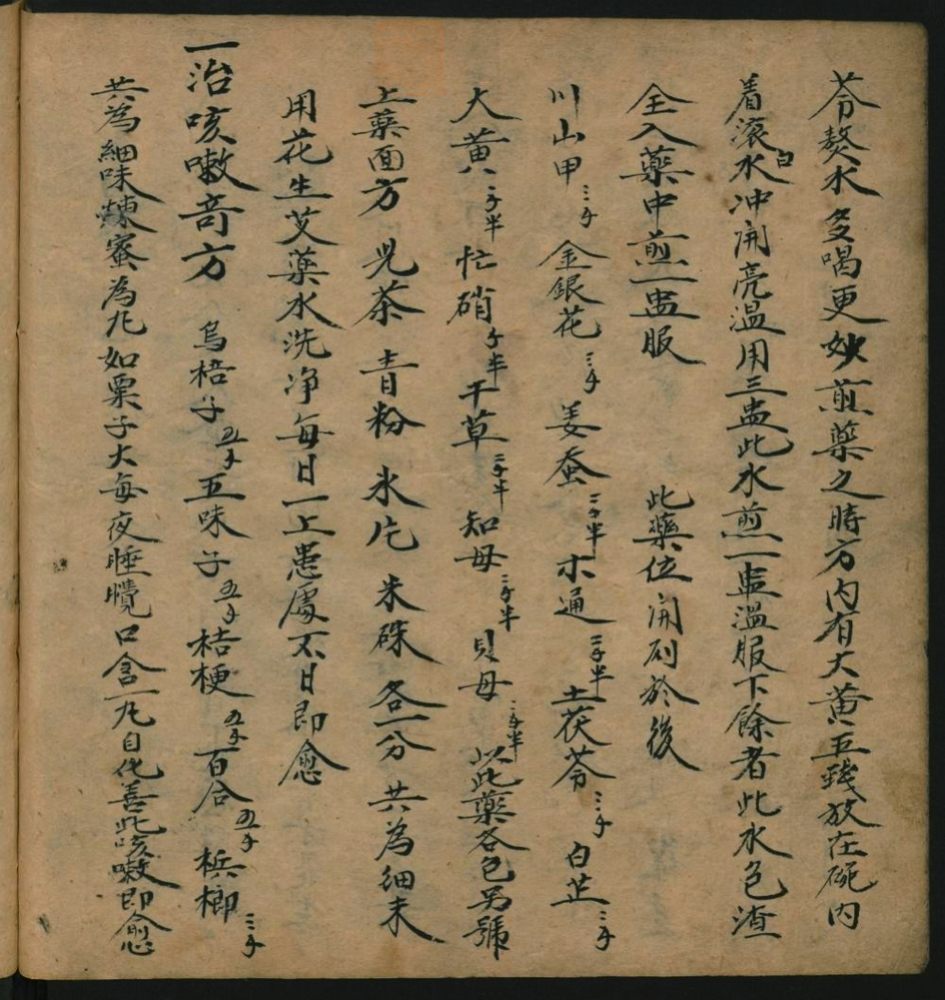 苓熬水多喝更妙煎藥之時方内有大黄五錢放在碗内
着滚白水冲開亮温用三盅此水煎一盅温服下餘者此水色渣
全入藥中煎一盅服　此藥位開列於後
川山甲三个 金銀花三个 姜蚕二个半 木通二个半 土茯苓三个 白芷三个
大黄二个半 忙硝个半 干草二个半 知母二个半 貝母二个半 以此藥各包另號
上藥面方 児茶 青粉 氷片 米硃 各一分 共為细末
用花生艾藥水洗净每日一上患處不日即愈
一治咳嗽奇方 烏梧子五个 五味子五个 桔梗五个 百合五个 梹榔三个
共為細味煉蜜為九如栗子大每夜睡覺口含一九自化善此咳嗽即愈